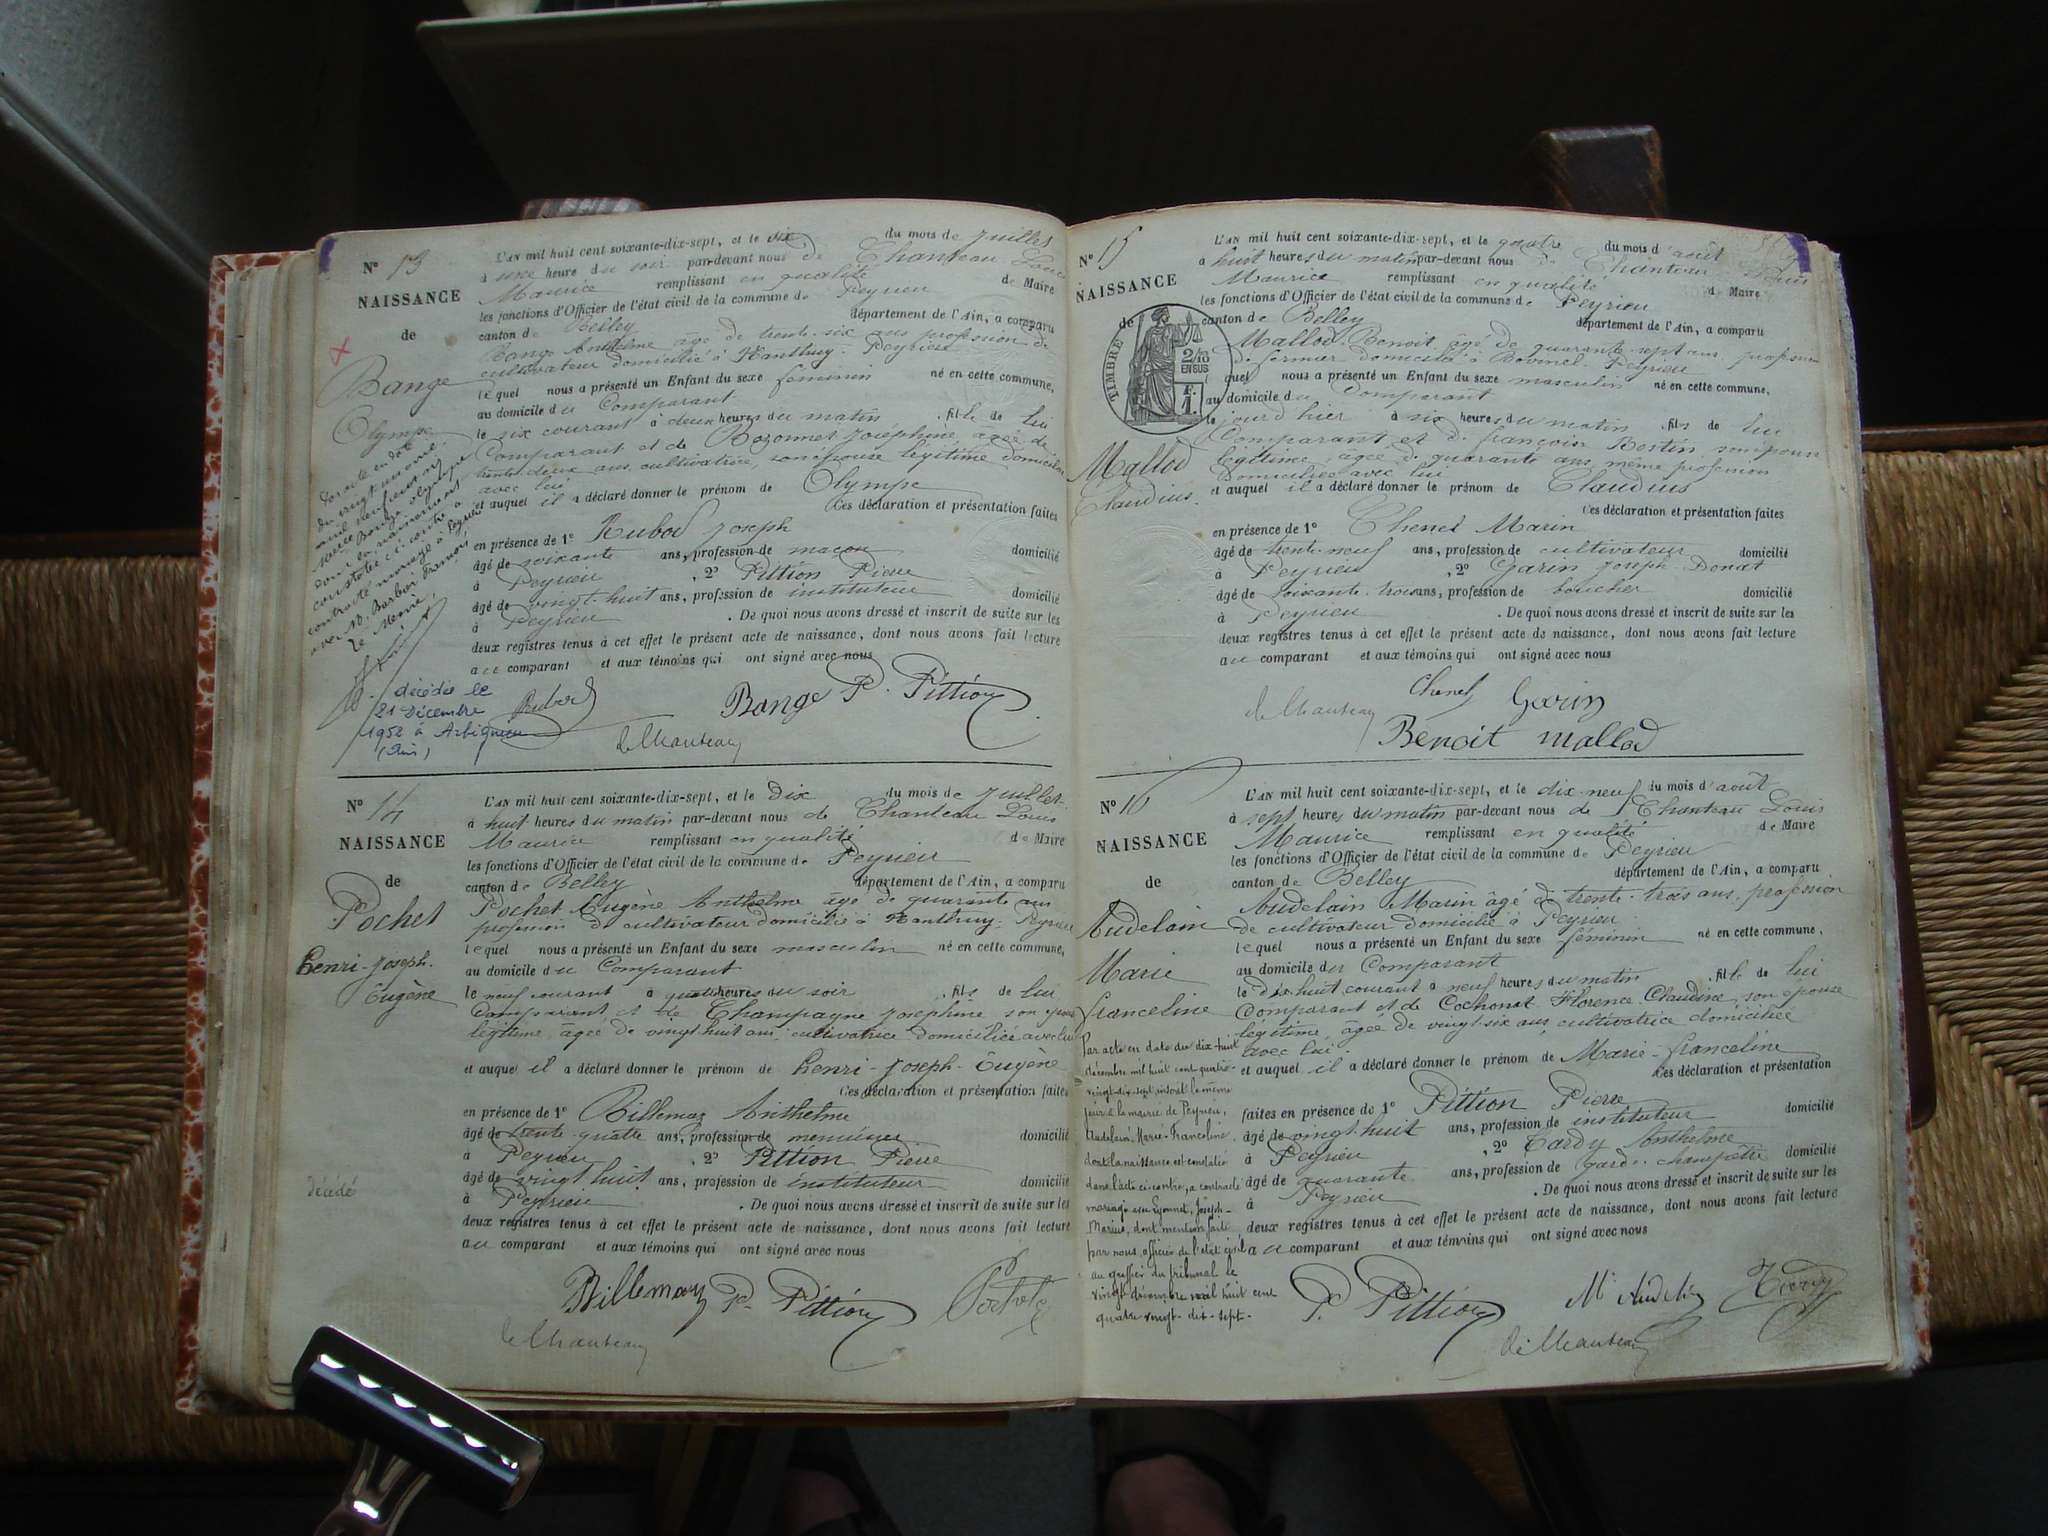 N° 13
NAISSANCE
de
Bange
Olympe
L'AN mil huit cent soixante-dix-sept, et le six du mois de juillet
à une heure du soir par-devant nous de Chanteau Louis
Maurice remplissant en qualité de Maire
les fonctions d'Officier de l'état civil de la commune de Peyrieu
canton de Belley département de l'Ain, a comparu
Bange Anthelme âgé de trente-six ans profession de
cultivateur domicilié à Nanthuy - Peyrieu
lequel nous a présenté un Enfant du sexe féminin né en cette commune,
au domicile du Comparant
le six courant à deux heures du matin, fille de lui
Comparant et de Bozonnet Joséphine âgée de
trente deux ans, cultivatrice, son épouse légitime domiciliée
avec lui
et auquel il a déclaré donner le prénom de Olympe
Ces déclaration et présentation faites
en présence de 1° Rubod Joseph
âgé de soixante ans, profession de maçon domicilié
à Peyrieu, 2° Pittion Pierre
âgé de vingt-huit ans, profession de instituteur domicilié
à Peyrieu. De quoi nous avons dressé et inscrit de suite sur les
deux registres tenus à cet effet le présent acte de naissance, dont nous avons fait lecture
au comparant et aux témoins qui ont signé avec nous
Par acte en date
du vingt un avril
mil neuf cent
dont la naissance est
constatée ci-contre a
contracté mariage à Peyrieu
avec M. Barbier François
Le Maire,
décédée le
21 Décembre
1952 à Arbignieu
(Ain)
Rubod
Bange P. Pittion
de Chanteau
N° 14
NAISSANCE
de
Pochet
henri-Joseph-
Eugène
décédé
L'AN mil huit cent soixante-dix-sept, et le dix du mois de juillet
à huit heures du matin par-devant nous de Chanteau Louis
Maurice remplissant en qualité de Maire
les fonctions d'Officier de l'état civil de la commune de Peyrieu
canton de Belley département de l'Ain, a comparu
Pochet Eugène Anthelme âgé de quarante ans
profession de cultivateur domicilié à Nanthuy - Peyrieu
lequel nous a présenté un Enfant du sexe masculin né en cette commune,
au domicile du Comparant
le neuf courant à quatre heures du soir, fils de lui
Comparant et de Champagne Joséphine son épouse
légitime, âgée de vingt huit ans, cultivatrice domiciliée avec lui
et auquel il a déclaré donner le prénom de henri-Joseph-Eugène
Ces déclaration et présentation faites
en présence de 1° Billemaz Anthelme
âgé de trente-quatre ans, profession de menuisier domicilié
à Peyrieu, 2° Pittion Pierre
âgé de vingt huit ans, profession de instituteur domicilié
à Peyrieu. De quoi nous avons dressé et inscrit de suite sur les
deux registres tenus à cet effet le présent acte de naissance, dont nous avons fait lecture
au comparant et aux témoins qui ont signé avec nous
Billemaz P. Pittion Pochet
de Chanteau
N° 15
NAISSANCE
de
TIMBRE
2/10
EN SUS
F.
1.
Mallod
Claudius.
L'AN mil huit cent soixante-dix-sept, et le quatre du mois d'août
à huit heures du matin par-devant nous de Chanteau Louis
Maurice remplissant en qualité de Maire
les fonctions d'Officier de l'état civil de la commune de Peyrieu
canton de Belley département de l'Ain, a comparu
Mallod Benoit âgé de quarante-sept ans, profession
de fermier domicilié à Bovinel - Peyrieu
lequel nous a présenté un Enfant du sexe masculin né en cette commune,
au domicile du Comparant
le jour d'hier à six heures du matin, fils de lui
Comparant et de françoise Bertin son épouse
légitime, âgée de quarante ans, même profession
domiciliée avec lui
et auquel il a déclaré donner le prénom de Claudius
Ces déclaration et présentation faites
en présence de 1° Chenet Marin
âgé de trente-neuf ans, profession de cultivateur domicilié
à Peyrieu, 2° Garin Joseph-Donat
âgé de soixante-trois ans, profession de boucher domicilié
à Peyrieu. De quoi nous avons dressé et inscrit de suite sur les
deux registres tenus à cet effet le présent acte de naissance, dont nous avons fait lecture
au comparant et aux témoins qui ont signé avec nous
de Chanteau Chenet Garin
Benoit mallod
N° 16
NAISSANCE
de
Audelain
Marie
franceline
Par acte en date du dix-huit
décembre mil huit cent quatre-
vingt-dix-sept inscrit le même
jour à la mairie de Peyrieu,
Audelain Marie-Franceline
dont la naissance est constatée
dans l'acte ci-contre, a contracté
mariage avec Eyonnet, Joseph-
Marius, dont mention faite
par nous, officier de l'état civil
au greffier du tribunal le
vingt décembre mil huit cent
quatre vingt-dix-sept.
L'AN mil huit cent soixante-dix-sept, et le dix-neuf du mois d'août
à sept heures du matin par-devant nous de Chanteau Louis
Maurice remplissant en qualité de Maire
les fonctions d'Officier de l'état civil de la commune de Peyrieu
canton de Belley département de l'Ain, a comparu
Audelain Marin âgé de trente-trois ans, profession
de cultivateur domicilié à Peyrieu
lequel nous a présenté un Enfant du sexe féminin né en cette commune,
au domicile du Comparant
le dix-huit courant à neuf heures du matin, fille de lui
Comparant et de Cochonat Florence Claudine, son épouse
légitime, âgée de vingt-six ans cultivatrice domiciliée
avec lui.
et auquel il a déclaré donner le prénom de Marie-franceline
Ces déclaration et présentation
faites en présence de 1° Pittion Pierre
âgé de vingt-huit ans, profession de instituteur domicilié
à Peyrieu, 2° Tardy Anthelme
âgé de quarante ans, profession de garde-champêtre domicilié
à Peyrieu. De quoi nous avons dressé et inscrit de suite sur les
deux registres tenus à cet effet le présent acte de naissance, dont nous avons fait lecture
au comparant et aux témoins qui ont signé avec nous
P. Pittion M Audelain Tardy
de Chanteau